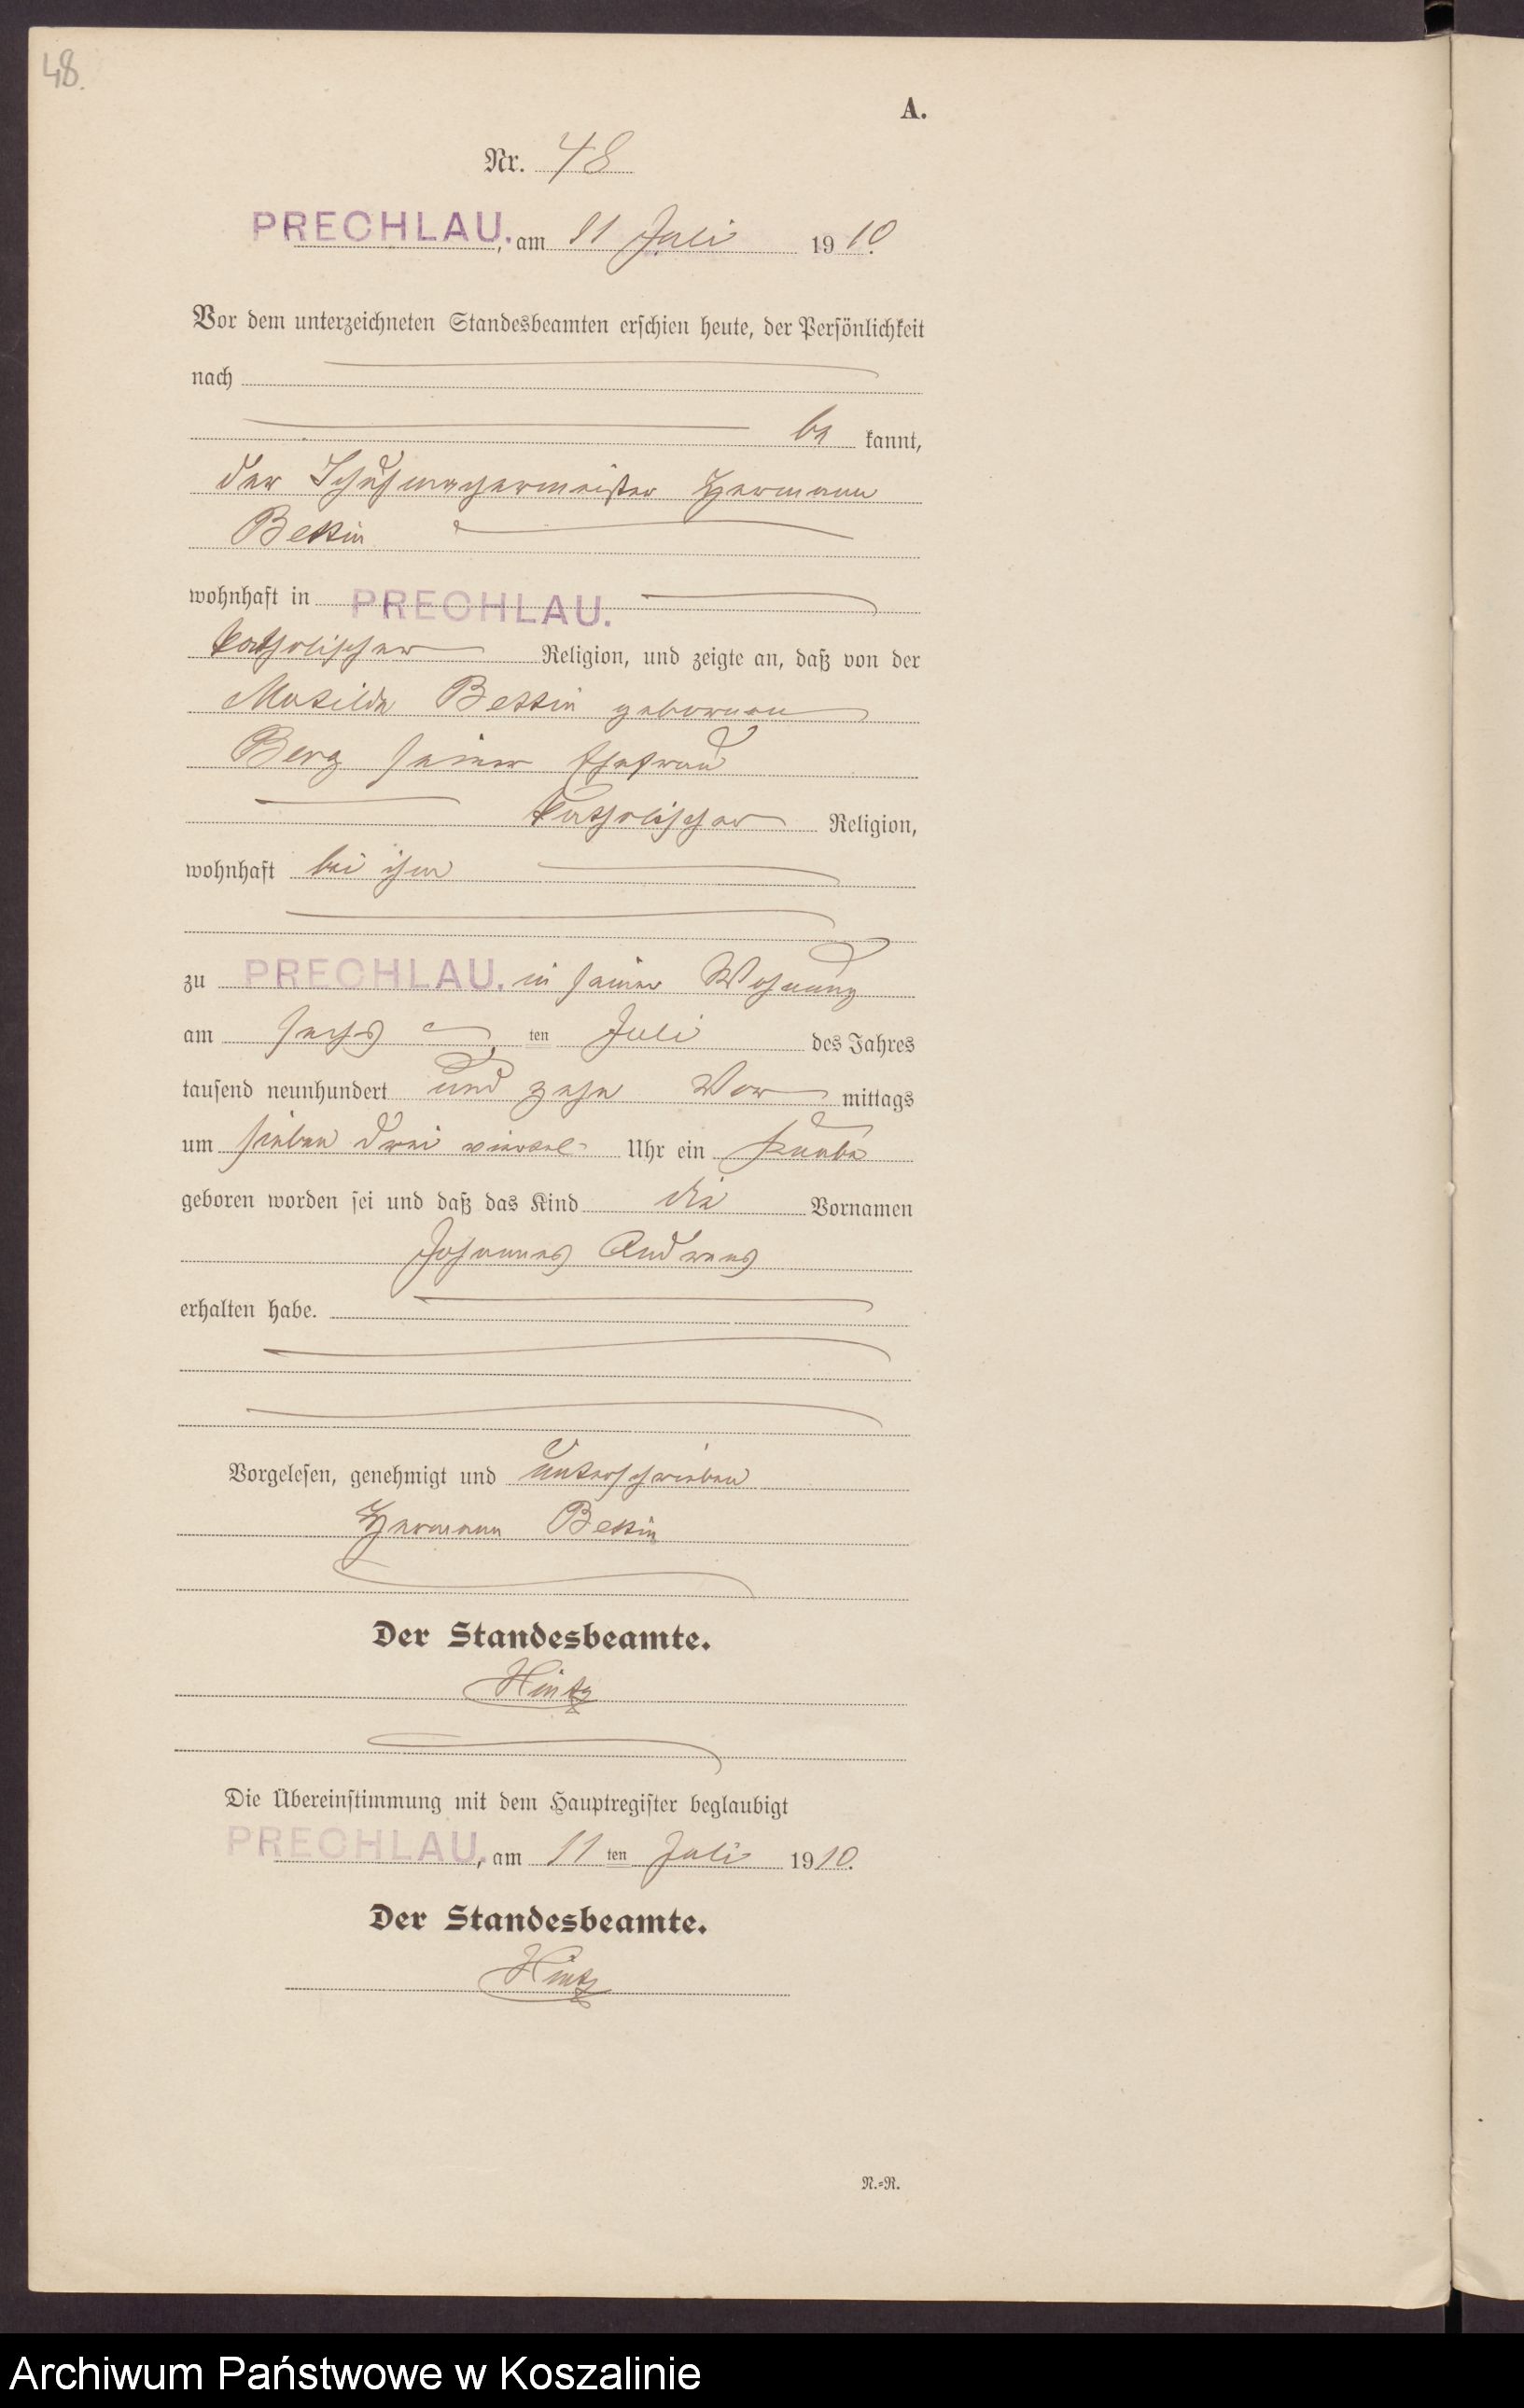 48.
A.
Nr. 48
PRECHLAU. , am 11 Juli 1910.
Vor dem unterzeichneten Standesbeamten erschien heute, der Persönlichkeit
nach
be kannt,
der Schuhmachermeister Hermann
Bettin
wohnhaft in PRECHLAU.
katholischer Religion, und zeigte an, daß von der
Matilde Bettin geborenen
Berg seiner Ehefrau
katholischer Religion,
wohnhaft bei ihm
zu PRECHLAU. in seiner Wohnung
am sechs ten Juli des Jahres
tausend neunhundert und zehn Vor mittags
um sieben drei viertel Uhr ein Knabe
geboren worden sei und daß das Kind die Vornamen
Johannes Andreas
erhalten habe.
Vorgelesen, genehmigt und unterschrieben
Hermann Bettin
Der Standesbeamte.
Hintz
Die Übereinstimmung mit dem Hauptregister beglaubigt
PRECHLAU. , am 11 ten Juli 1910.
Der Standesbeamte.
Hintz
N.=R.
Archiwum Państwowe w Koszalinie